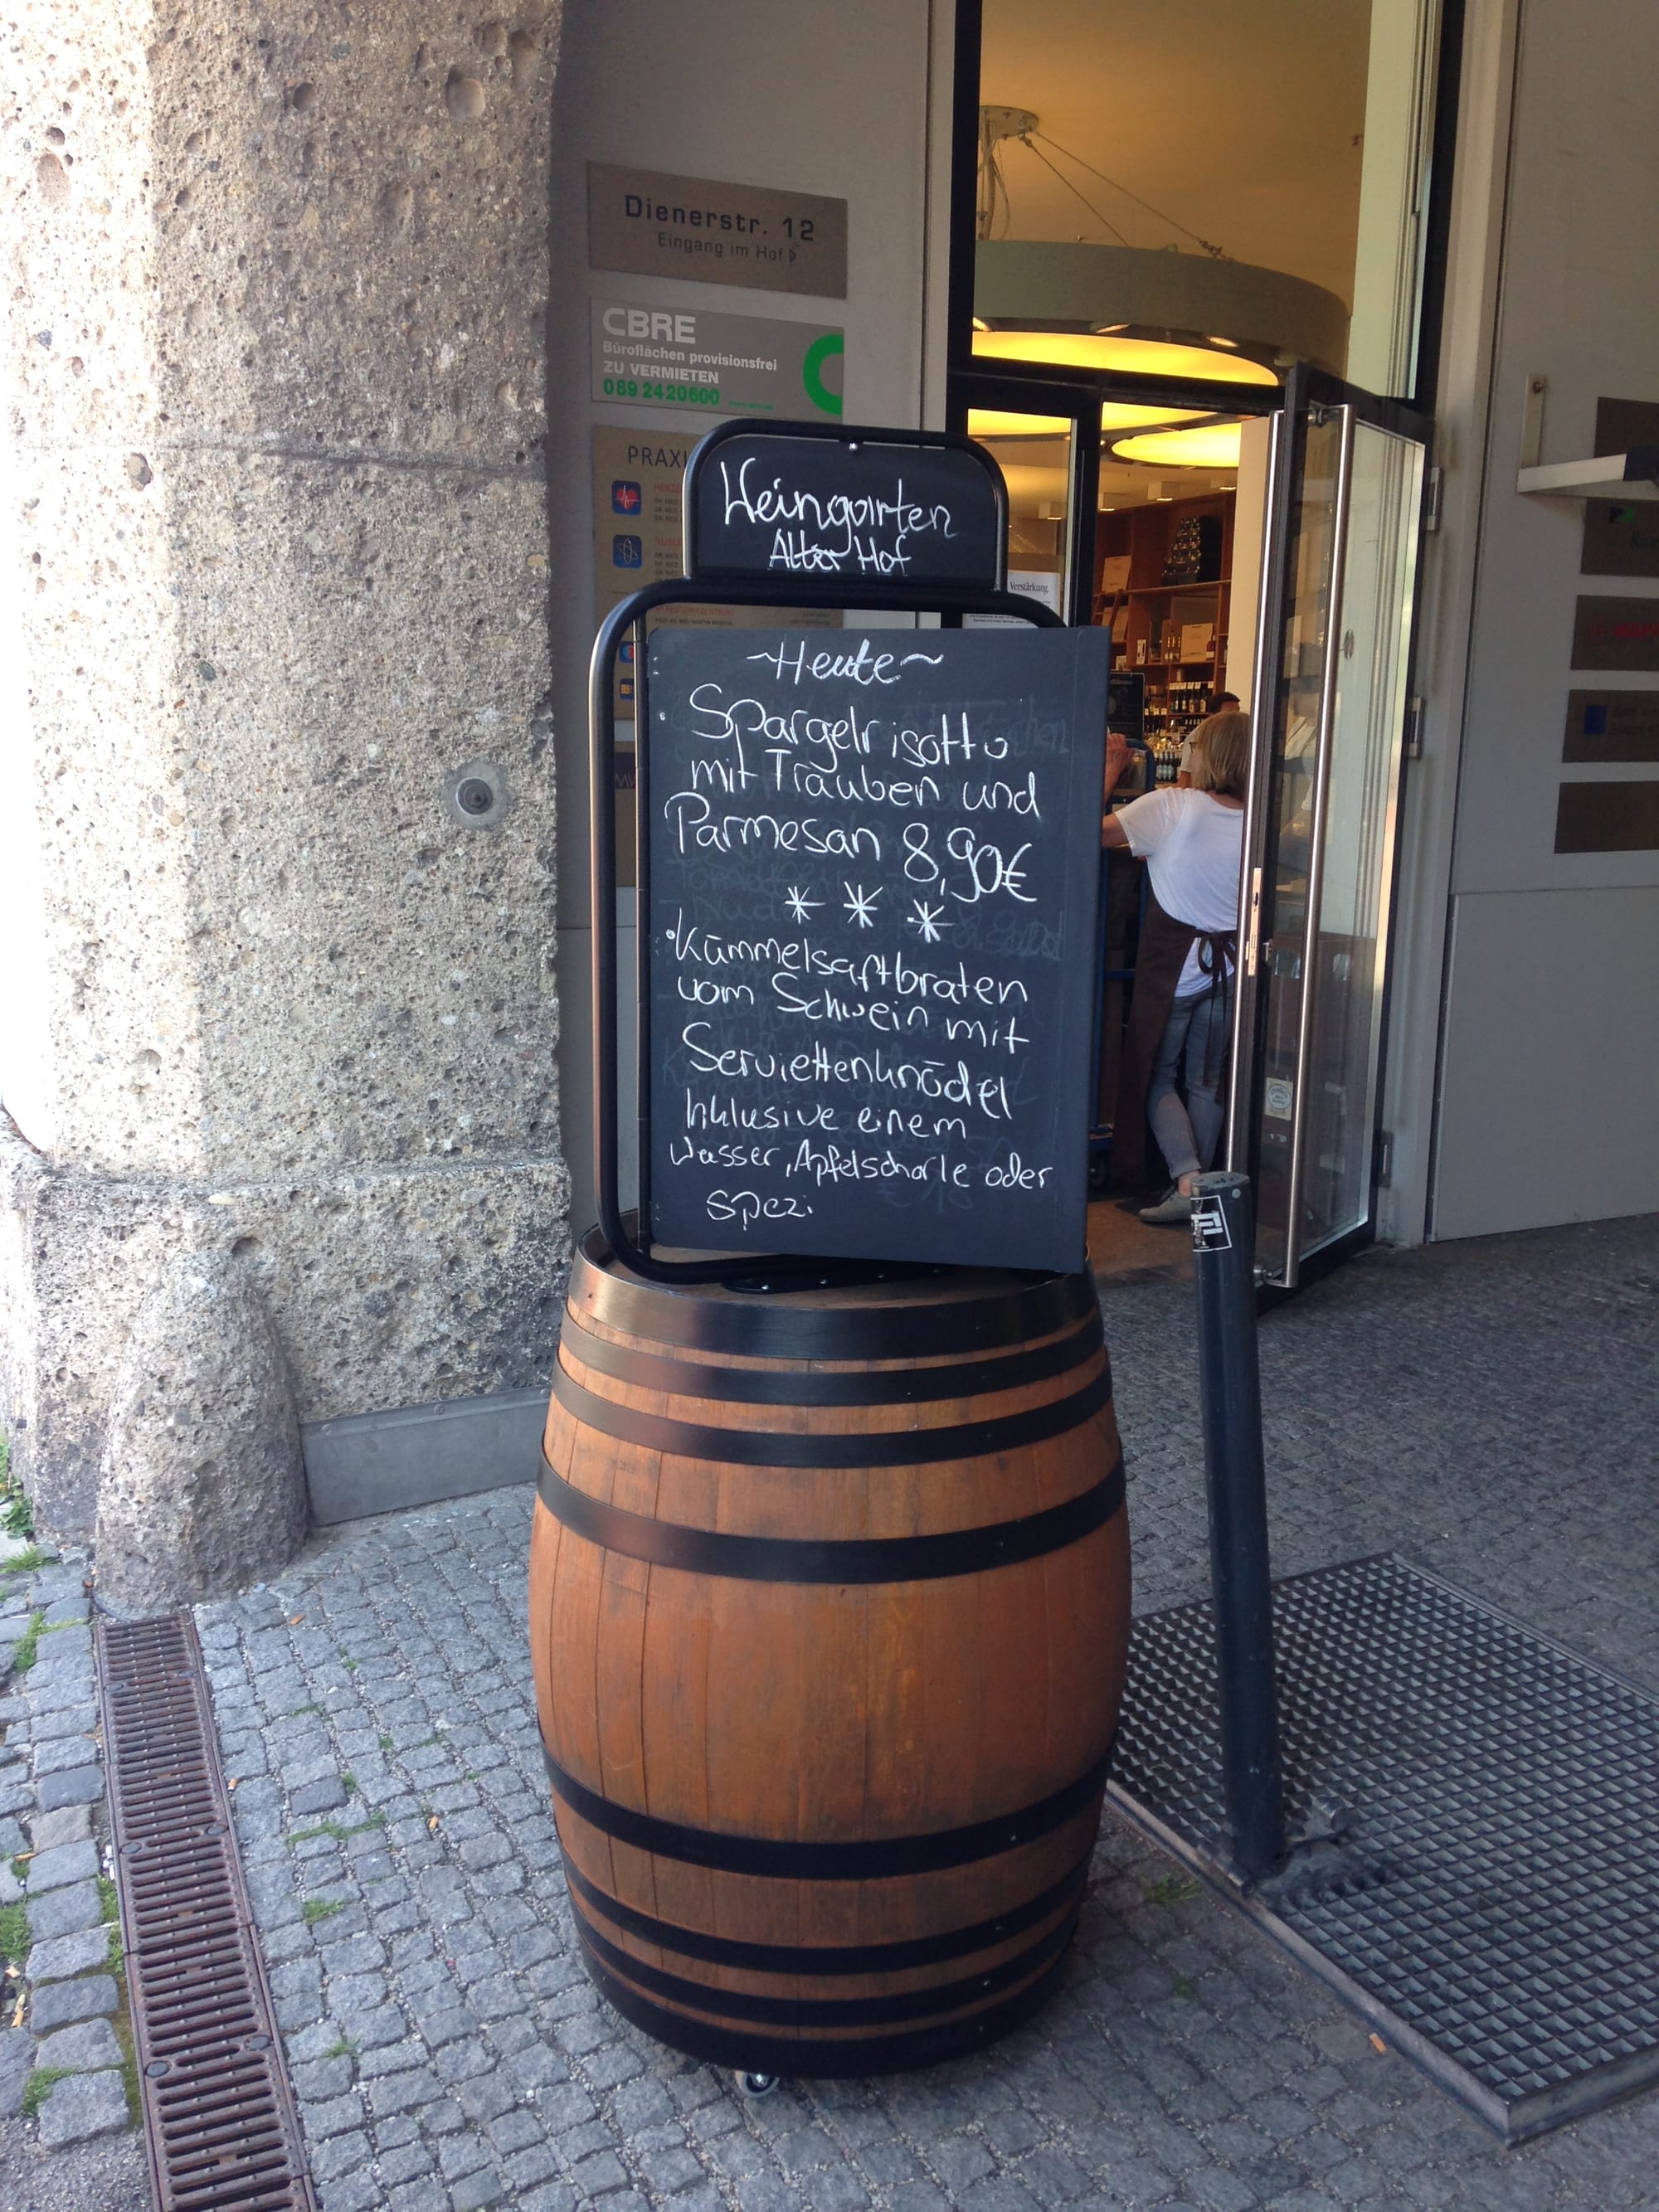 Dienerstr. 12
Eingang im Hof
CBRE
Büroflächen provisionsfrei
ZU VERMIETEN
089 2420600
PRAXI
Weingarten
Alter Hof
Verstärkung
~Heute~
Spargelrisotto
mit Trauben und
Parmesan 8,90€
* * *
Kümmelsaftbraten
vom Schwein mit
Serviettenknödel
Inklusive einem
Wasser, Apfelschorle oder
Spezi